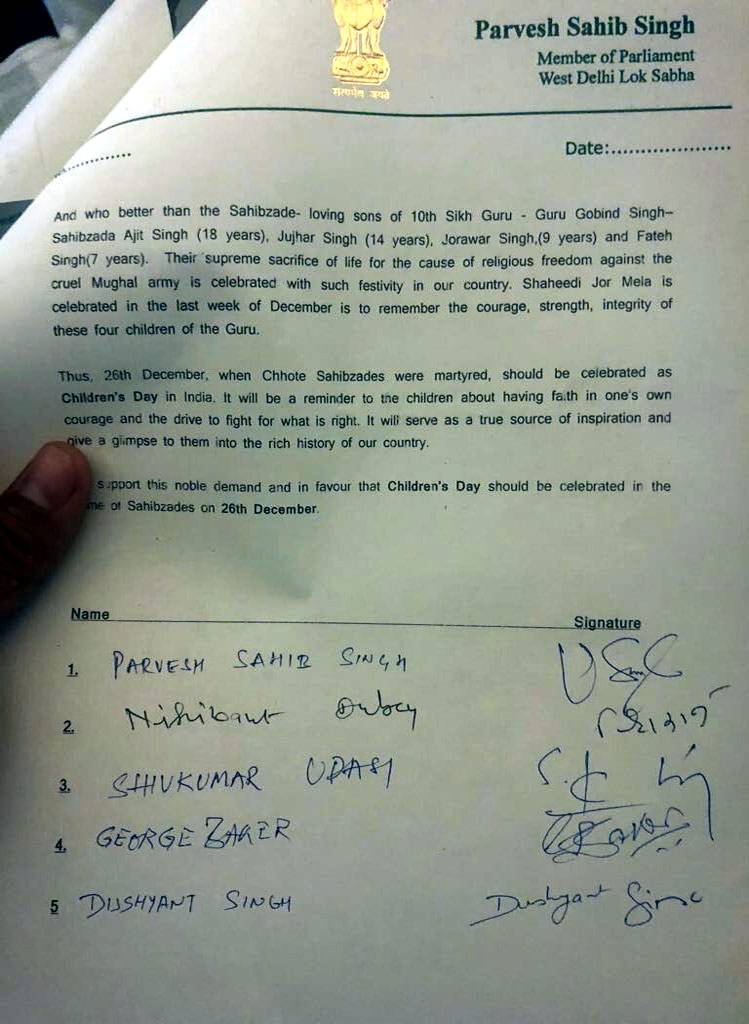 सत्यमेव जयते
Parvesh Sahib Singh
Member of Parliament
West Delhi Lok Sabha
Date:.....................
And who better than the Sahibzade- loving sons of 10th Sikh Guru - Guru Gobind Singh–
Sahibzada Ajit Singh (18 years), Jujhar Singh (14 years), Jorawar Singh,(9 years) and Fateh
Singh(7 years). Their supreme sacrifice of life for the cause of religious freedom against the
cruel Mughal army is celebrated with such festivity in our country. Shaheedi Jor Mela is
celebrated in the last week of December is to remember the courage, strength, integrity of
these four children of the Guru.
Thus, 26th December, when Chhote Sahibzades were martyred, should be celebrated as
Children's Day in India. It will be a reminder to the children about having faith in one's own
courage and the drive to fight for what is right. It will serve as a true source of inspiration and
give a glimpse to them into the rich history of our country.
support this noble demand and in favour that Children's Day should be celebrated in the
me of Sahibzades on 26th December.
Name Signature
1. PARVESH SAHIB SINGH
2. Nishikant Dubey
3. SHIVKUMAR UDASI
4. GEORGE BAKER
5 DUSHYANT SINGH Dushyant Singh